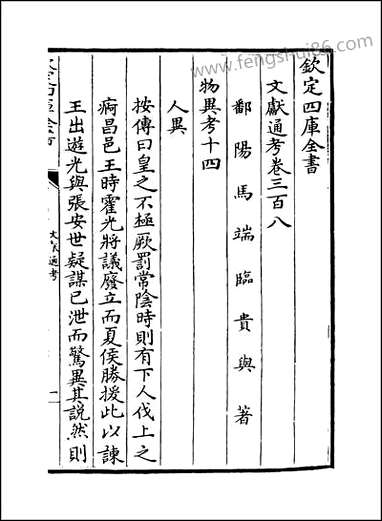 欽定四庫全書
文獻通考卷三百八
鄱陽馬端臨貴與著
物異考十四
人異
按傳曰皇之不極厥罰常陰時則有下人伐上之
痾昌邑王時霍光將議廢立而夏侯勝援此以諫
王出遊光與張安世疑謀已泄而驚異其説然則
文獻通考
一
www.fengshui86.com